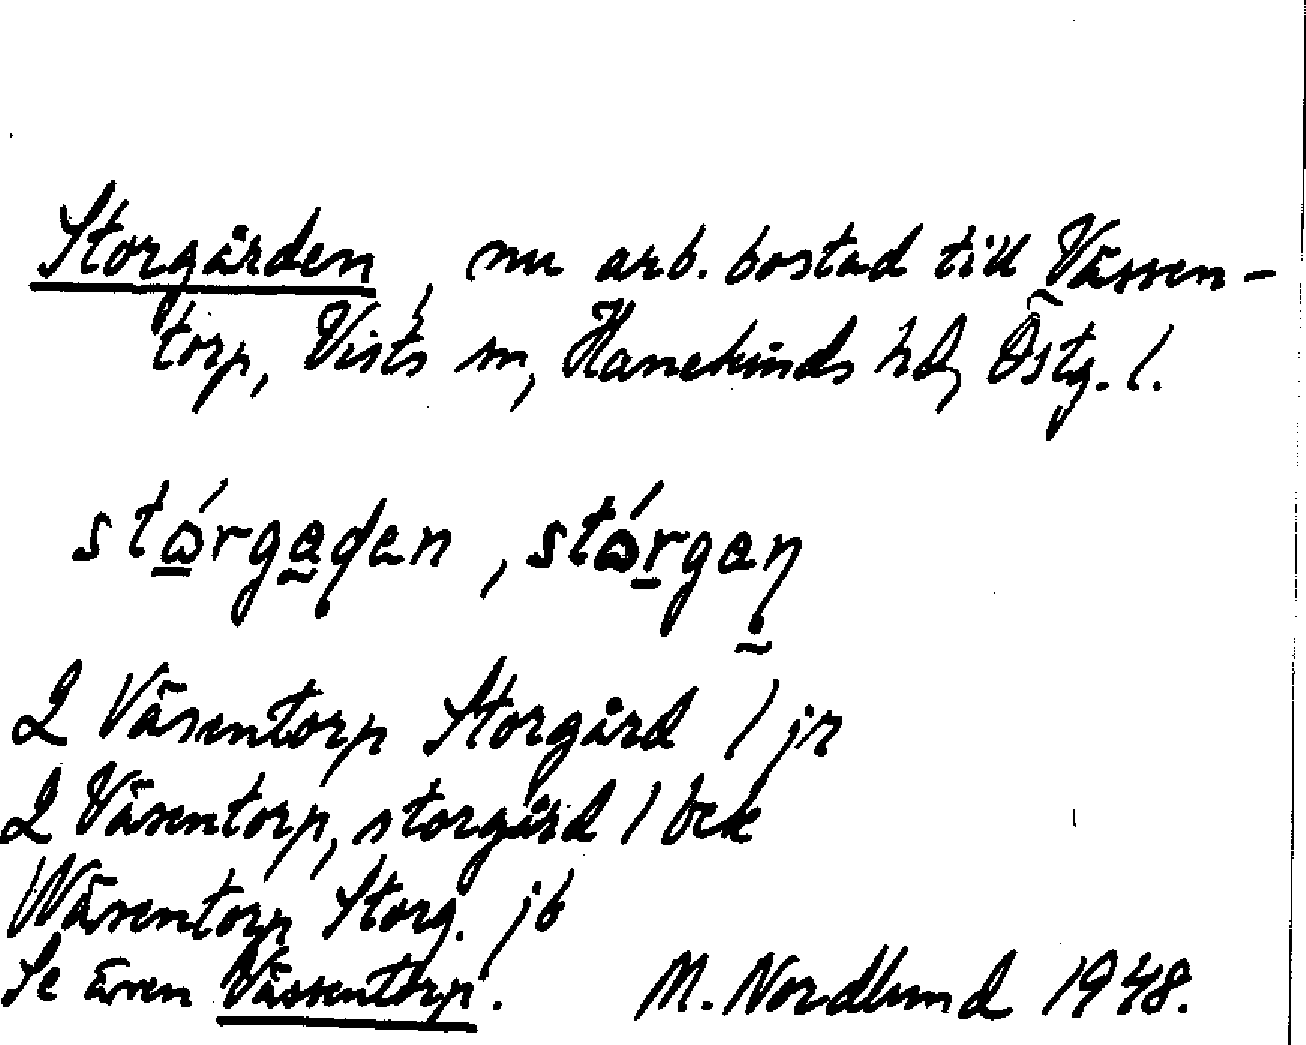 Storgården, nu arb. bostad till Vässen-
torp, Vists sn, Hanekinds hd, Östg. l.
stǿrga̰ɖen, stǿrgaɳ̰
2 Väsentorp Storgård 1 jr
2 Väsentorp, storgård 1 bek
Wäsentorp Storg. jb
Se även Vässentorp. M. Nordlund 1948.